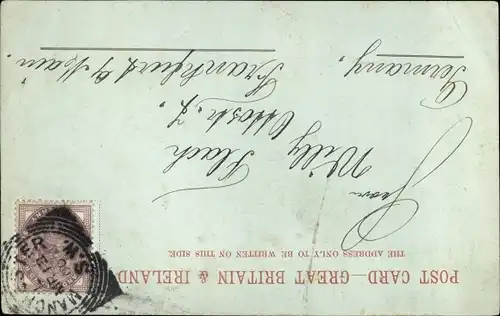 POST CARD—GREAT BRITAIN & IRELAND
THE ADDRESS ONLY TO BE WRITTEN ON THIS SIDE
Herrn
Willy Flach
Frankfurt a/Main.
Germany.